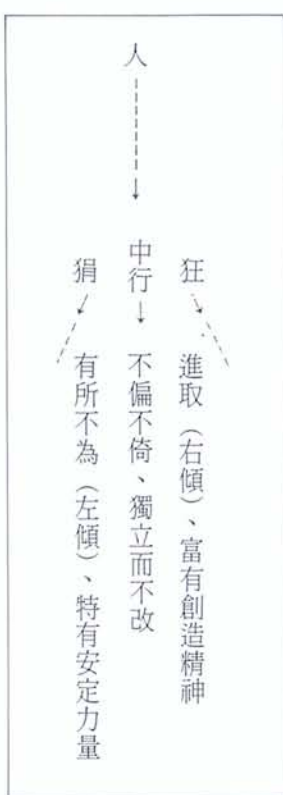 人
狂
進取（右傾）、富有創造精神
中行
不偏不倚、獨立而不改
狷
有所不為（左傾）、特有安定力量